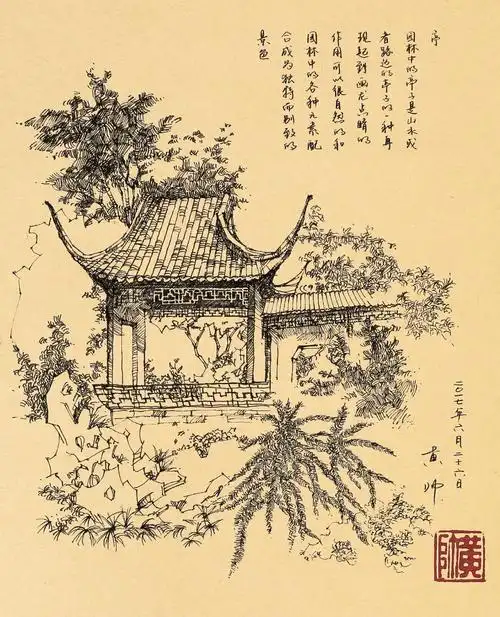 亭
园林中的亭子是山水或
者路边的亭子的一种再
现起到画龙点睛的
作用可以很自然的和
园林中的各种元素配
合成为独特而别致的
景色
二〇一七年六月二十六日
黄帅